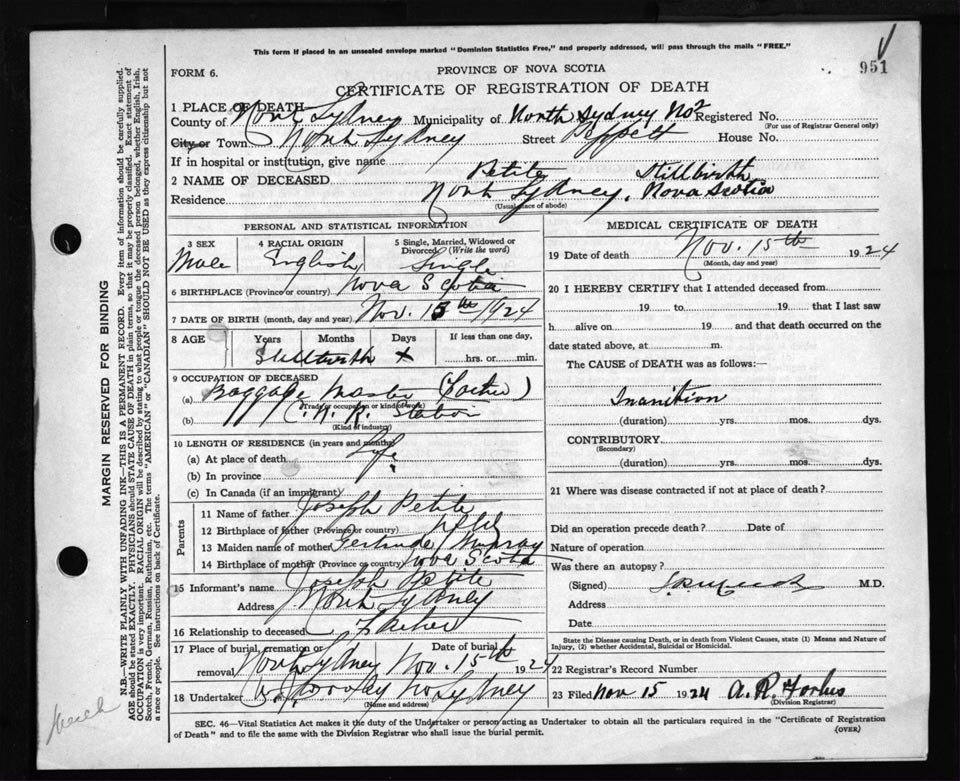 This form if placed in an unsealed envelope marked "Dominion Statistics Free," and properly addressed, will pass through the mails "FREE."
951
FORM 6.
PROVINCE OF NOVA SCOTIA
CERTIFICATE OF REGISTRATION OF DEATH
1 PLACE OF DEATH
County of North Sydney Municipality of North Sydney No 2 Registered No.
(For use of Registrar General only)
City or Town North Sydney Street House No.
If in hospital or institution, give name
2 NAME OF DECEASED Petite Stillbirth
Residence North Sydney, Nova Scotia
(Usual place of abode)
PERSONAL AND STATISTICAL INFORMATION
3 SEX Male
4 RACIAL ORIGIN English
5 Single, Married, Widowed or Divorced (Write the word) Single
6 BIRTHPLACE (Province or country) Nova Scotia
7 DATE OF BIRTH (month, day and year) Nov. 15th 1924
8 AGE Years Months Days If less than one day,
Stillbirth x hrs. or min.
9 OCCUPATION OF DECEASED
(a) Baggage Master (Father)
(Trade or occupation or kind of work)
(b) C. N. R. Station
(Kind of industry)
10 LENGTH OF RESIDENCE (in years and months)
(a) At place of death Life
(b) In province
(c) In Canada (if an immigrant)
Parents
11 Name of father Joseph Petite
12 Birthplace of father (Province or country) Nfld
13 Maiden name of mother Gertrude Murray
14 Birthplace of mother (Province or country) Nova Scotia
15 Informant's name Joseph Petite
Address North Sydney
16 Relationship to deceased Father
17 Place of burial, cremation or removal North Sydney Date of burial Nov. 15th 1924
18 Undertaker No Sydney
(Name and address)
MEDICAL CERTIFICATE OF DEATH
19 Date of death Nov. 15th 1924
(Month, day and year)
20 I HEREBY CERTIFY that I attended deceased from
19 to 19 that I last saw
h alive on 19 and that death occurred on the
date stated above, at m.
The CAUSE of DEATH was as follows:
Inanition
(duration) yrs. mos. dys.
CONTRIBUTORY
(Secondary)
(duration) yrs. mos. dys.
21 Where was disease contracted if not at place of death?
Did an operation precede death? Date of
Nature of operation
Was there an autopsy?
(Signed) M.D.
Address
Date
State the Disease causing Death, or in death from Violent Causes, state (1) Means and Nature of
Injury, (2) whether Accidental, Suicidal or Homicidal.
22 Registrar's Record Number
23 Filed Nov 15 1924 A. R. Forbes
(Division Registrar)
SEC. 46—Vital Statistics Act makes it the duty of the Undertaker or person acting as Undertaker to obtain all the particulars required in the "Certificate of Registration
of Death" and to file the same with the Division Registrar who shall issue the burial permit.
(OVER)
MARGIN RESERVED FOR BINDING
N.B.—WRITE PLAINLY WITH UNFADING INK—THIS IS A PERMANENT RECORD. Every item of information should be carefully supplied.
AGE should be stated EXACTLY. PHYSICIANS should STATE CAUSE OF DEATH in plain terms, so that it may be properly classified. Exact statement of
OCCUPATION is very important. RACIAL ORIGIN will be described by stating to what people or tongue the deceased person belonged, whether English, Irish,
Scotch, French, German, Russian, Ruthenian, etc. The terms "AMERICAN" or "CANADIAN" SHOULD NOT BE USED as they express citizenship but not
a race or people. See instructions on back of Certificate.